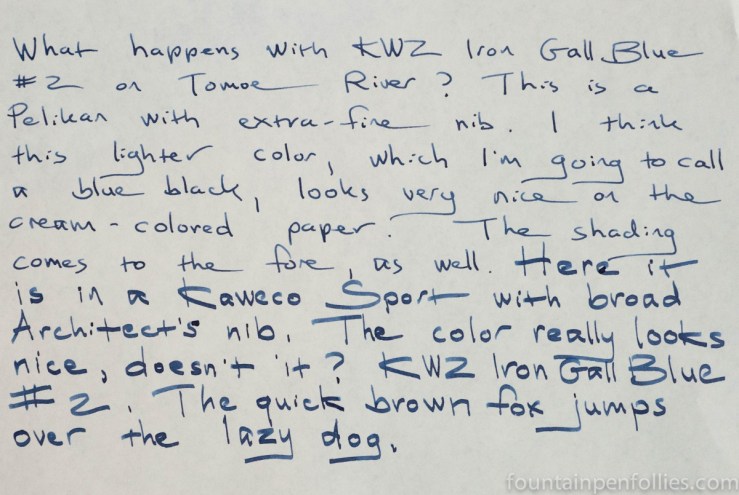 What happens with KWZ Iron Gall Blue
#2 on Tomoe River? This is a
Pelikan with extra-fine nib. I think
this lighter color, which I'm going to call
a blue black, looks very nice on the
cream-colored paper. The shading
comes to the fore, as well. Here it
is in a Kaweco Sport with broad
Architect's nib. The color really looks
nice, doesn't it? KWZ Iron Gall Blue
#2. The quick brown fox jumps
over the lazy dog.
fountainpenfollies.com